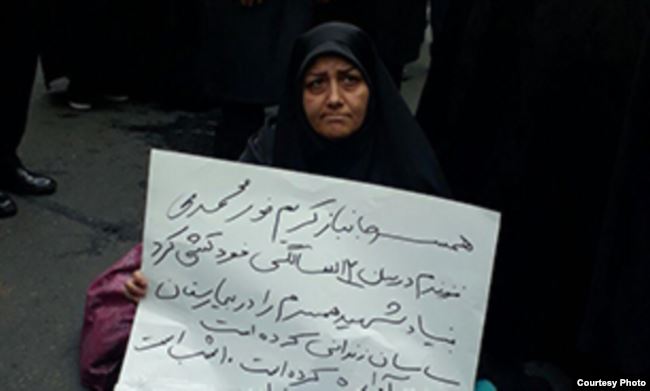 همسر جانباز کریم نورمحمدی
فرزندم در سن ۱۲ سالگی خودکشی کرد
بنیاد شهید همسرم را در بیمارستان
ساسان زندانی کرده است
کرده است
Courtesy Photo